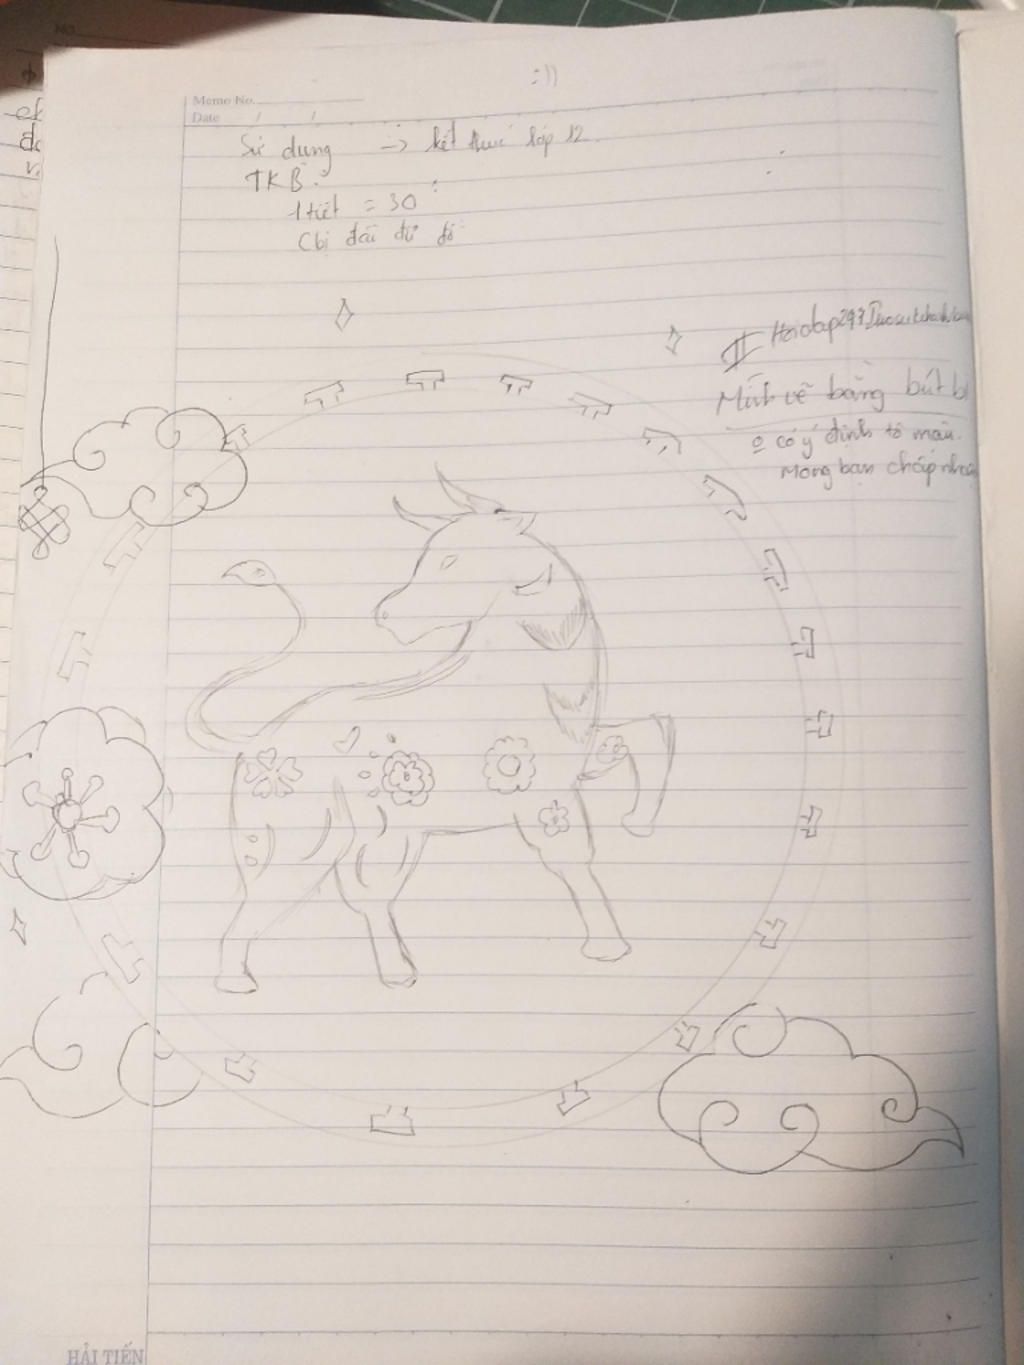 :))
Memo No.
Date / /
Sử dụng -> kết thúc lớp 12.
TKB:
1 tiết = 30'
Cbị đầy đủ đồ
Mình vẽ bằng bút bi
o có ý định tô màu.
Mong bạn chấp nhận
HẢI TIẾN